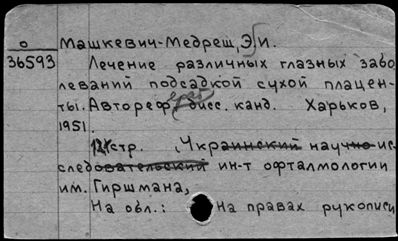 о
36593
Машкевич-Медрещ, Э. И.
Лечение различных глазных забо
леваний подсадкой сухой плацен-
ты. Автореф. дисс. канд. Харьков,
1951.
12 стр. Украинский научно ис-
следовательский ин-т офталмологии
им. Гиршмана,
На обл.: На правах рукописи